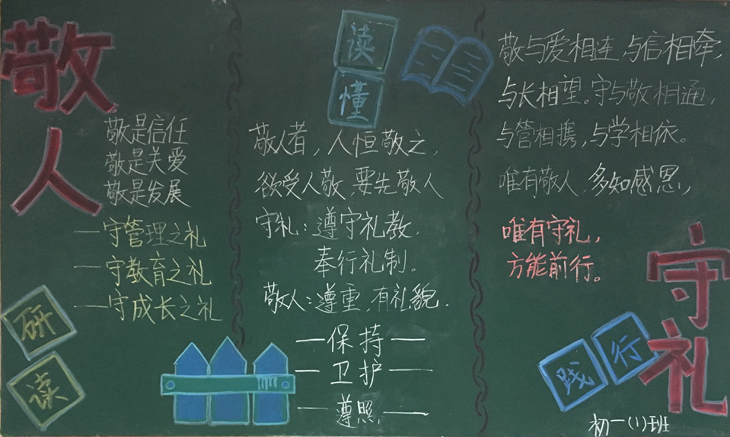 敬人
敬是信任
敬是关爱
敬是发展
一守管理之礼
一守教育之礼
一守成长之礼
研读
读懂
敬人者，人恒敬之，
欲受人敬，要先敬人
守礼：遵守礼教.
奉行礼制。
敬人：遵重，有礼貌.
一保持一
一卫护一
一遵照一
敬与爱相连，与信相牵，
与长相望。守与敬相通，
与管相携，与学相依。
唯有敬人，多知感恩，
唯有守礼，
方能前行。
守礼
践行
初一(1)班